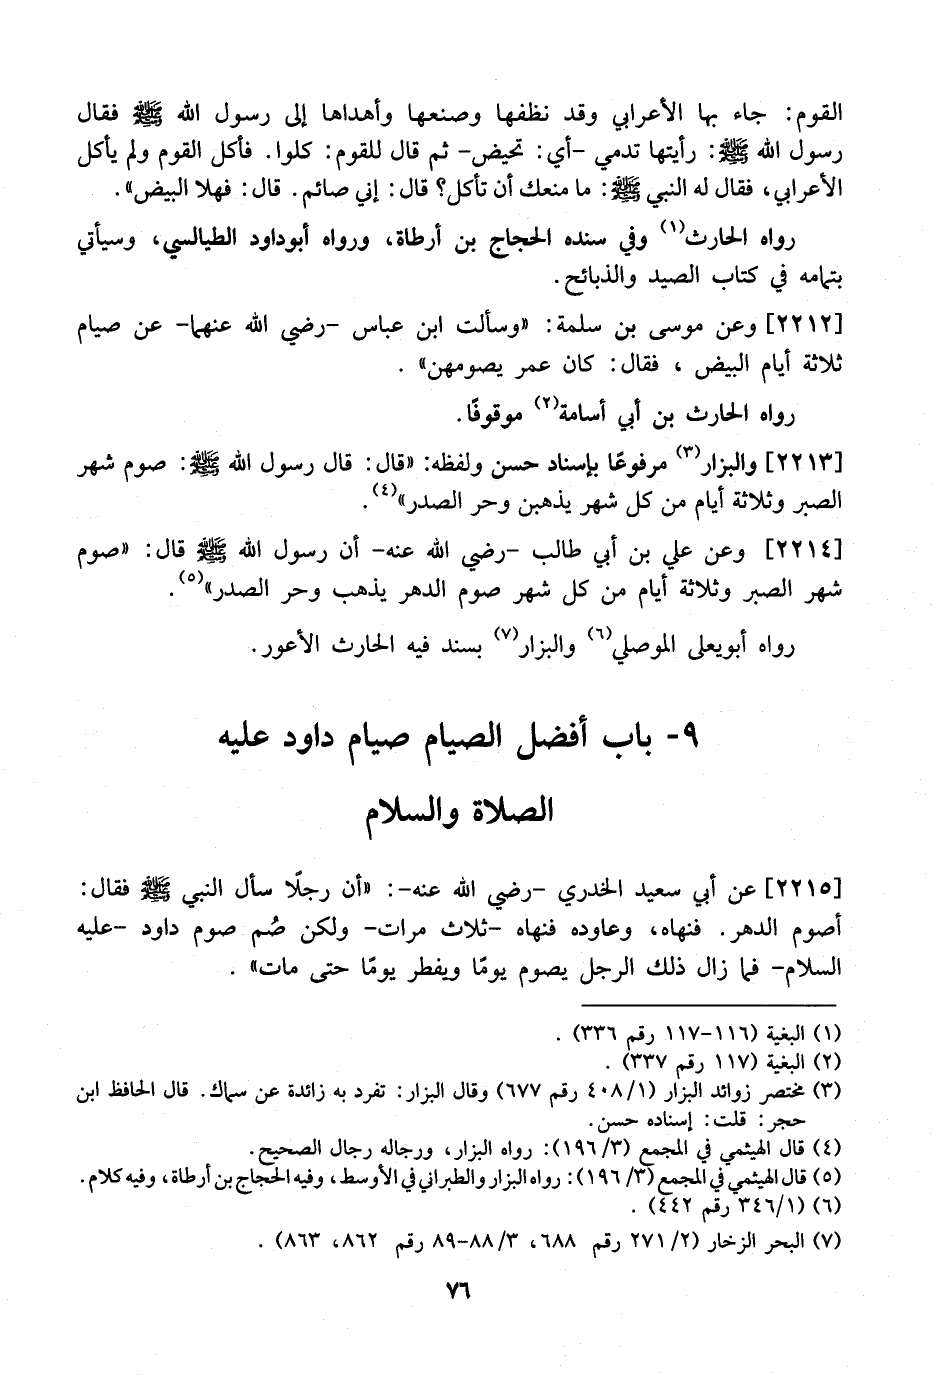 القوم: جاء بها الأعرابي وقد نظفها وصنعها وأهداها إلى رسول الله ﷺ فقال
رسول الله ﷺ: رأيتها تدمي -أي: تحيض- ثم قال للقوم: كلوا. فأكل القوم ولم يأكل
الأعرابي، فقال له النبي ﷺ: ما منعك أن تأكل؟ قال: إني صائم. قال: فهلا البيض».
رواه الحارث(١) وفي سنده الحجاج بن أرطاة، ورواه أبوداود الطيالسي، وسيأتي
بتمامه في كتاب الصيد والذبائح.
[٢٢١٢] وعن موسى بن سلمة: «وسألت ابن عباس -رضي الله عنهما- عن صيام
ثلاثة أيام البيض ، فقال: كان عمر يصومهن» .
رواه الحارث بن أبي أسامة(٢) موقوفًا.
[٢٢١٣] والبزار(٣) مرفوعًا بإسناد حسن ولفظه: «قال: قال رسول الله ﷺ: صوم شهر
الصبر وثلاثة أيام من كل شهر يذهبن وحر الصدر»(٤).
[٢٢١٤] وعن علي بن أبي طالب -رضي الله عنه- أن رسول الله ﷺ قال: «صوم
شهر الصبر وثلاثة أيام من كل شهر صوم الدهر يذهب وحر الصدر»(٥).
رواه أبويعلى الموصلي(٦) والبزار(٧) بسند فيه الحارث الأعور.
٩- باب أفضل الصيام صيام داود عليه
الصلاة والسلام
[٢٢١٥] عن أبي سعيد الخدري -رضي الله عنه-: «أن رجلًا سأل النبي ﷺ فقال:
أصوم الدهر. فنهاه، وعاوده فنهاه -ثلاث مرات- ولكن صُم صوم داود -عليه
السلام- فما زال ذلك الرجل يصوم يومًا ويفطر يومًا حتى مات» .
(١) البغية (١١٦-١١٧ رقم ٣٣٦) .
(٢) البغية (١١٧ رقم ٣٣٧) .
(٣) مختصر زوائد البزار (١/ ٤٠٨ رقم ٦٧٧) وقال البزار: تفرد به زائدة عن سماك. قال الحافظ ابن
حجر: قلت: إسناده حسن.
(٤) قال الهيثمي في المجمع (٣/ ١٩٦): رواه البزار، ورجاله رجال الصحيح.
(٥) قال الهيثمي في المجمع (٣/ ١٩٦): رواه البزار والطبراني في الأوسط، وفيه الحجاج بن أرطاة، وفيه كلام.
(٦) (١/ ٣٤٦ رقم ٤٤٢) .
(٧) البحر الزخار (٢/ ٢٧١ رقم ٦٨٨، ٣/ ٨٨-٨٩ رقم ٨٦٢، ٨٦٣) .
٧٦